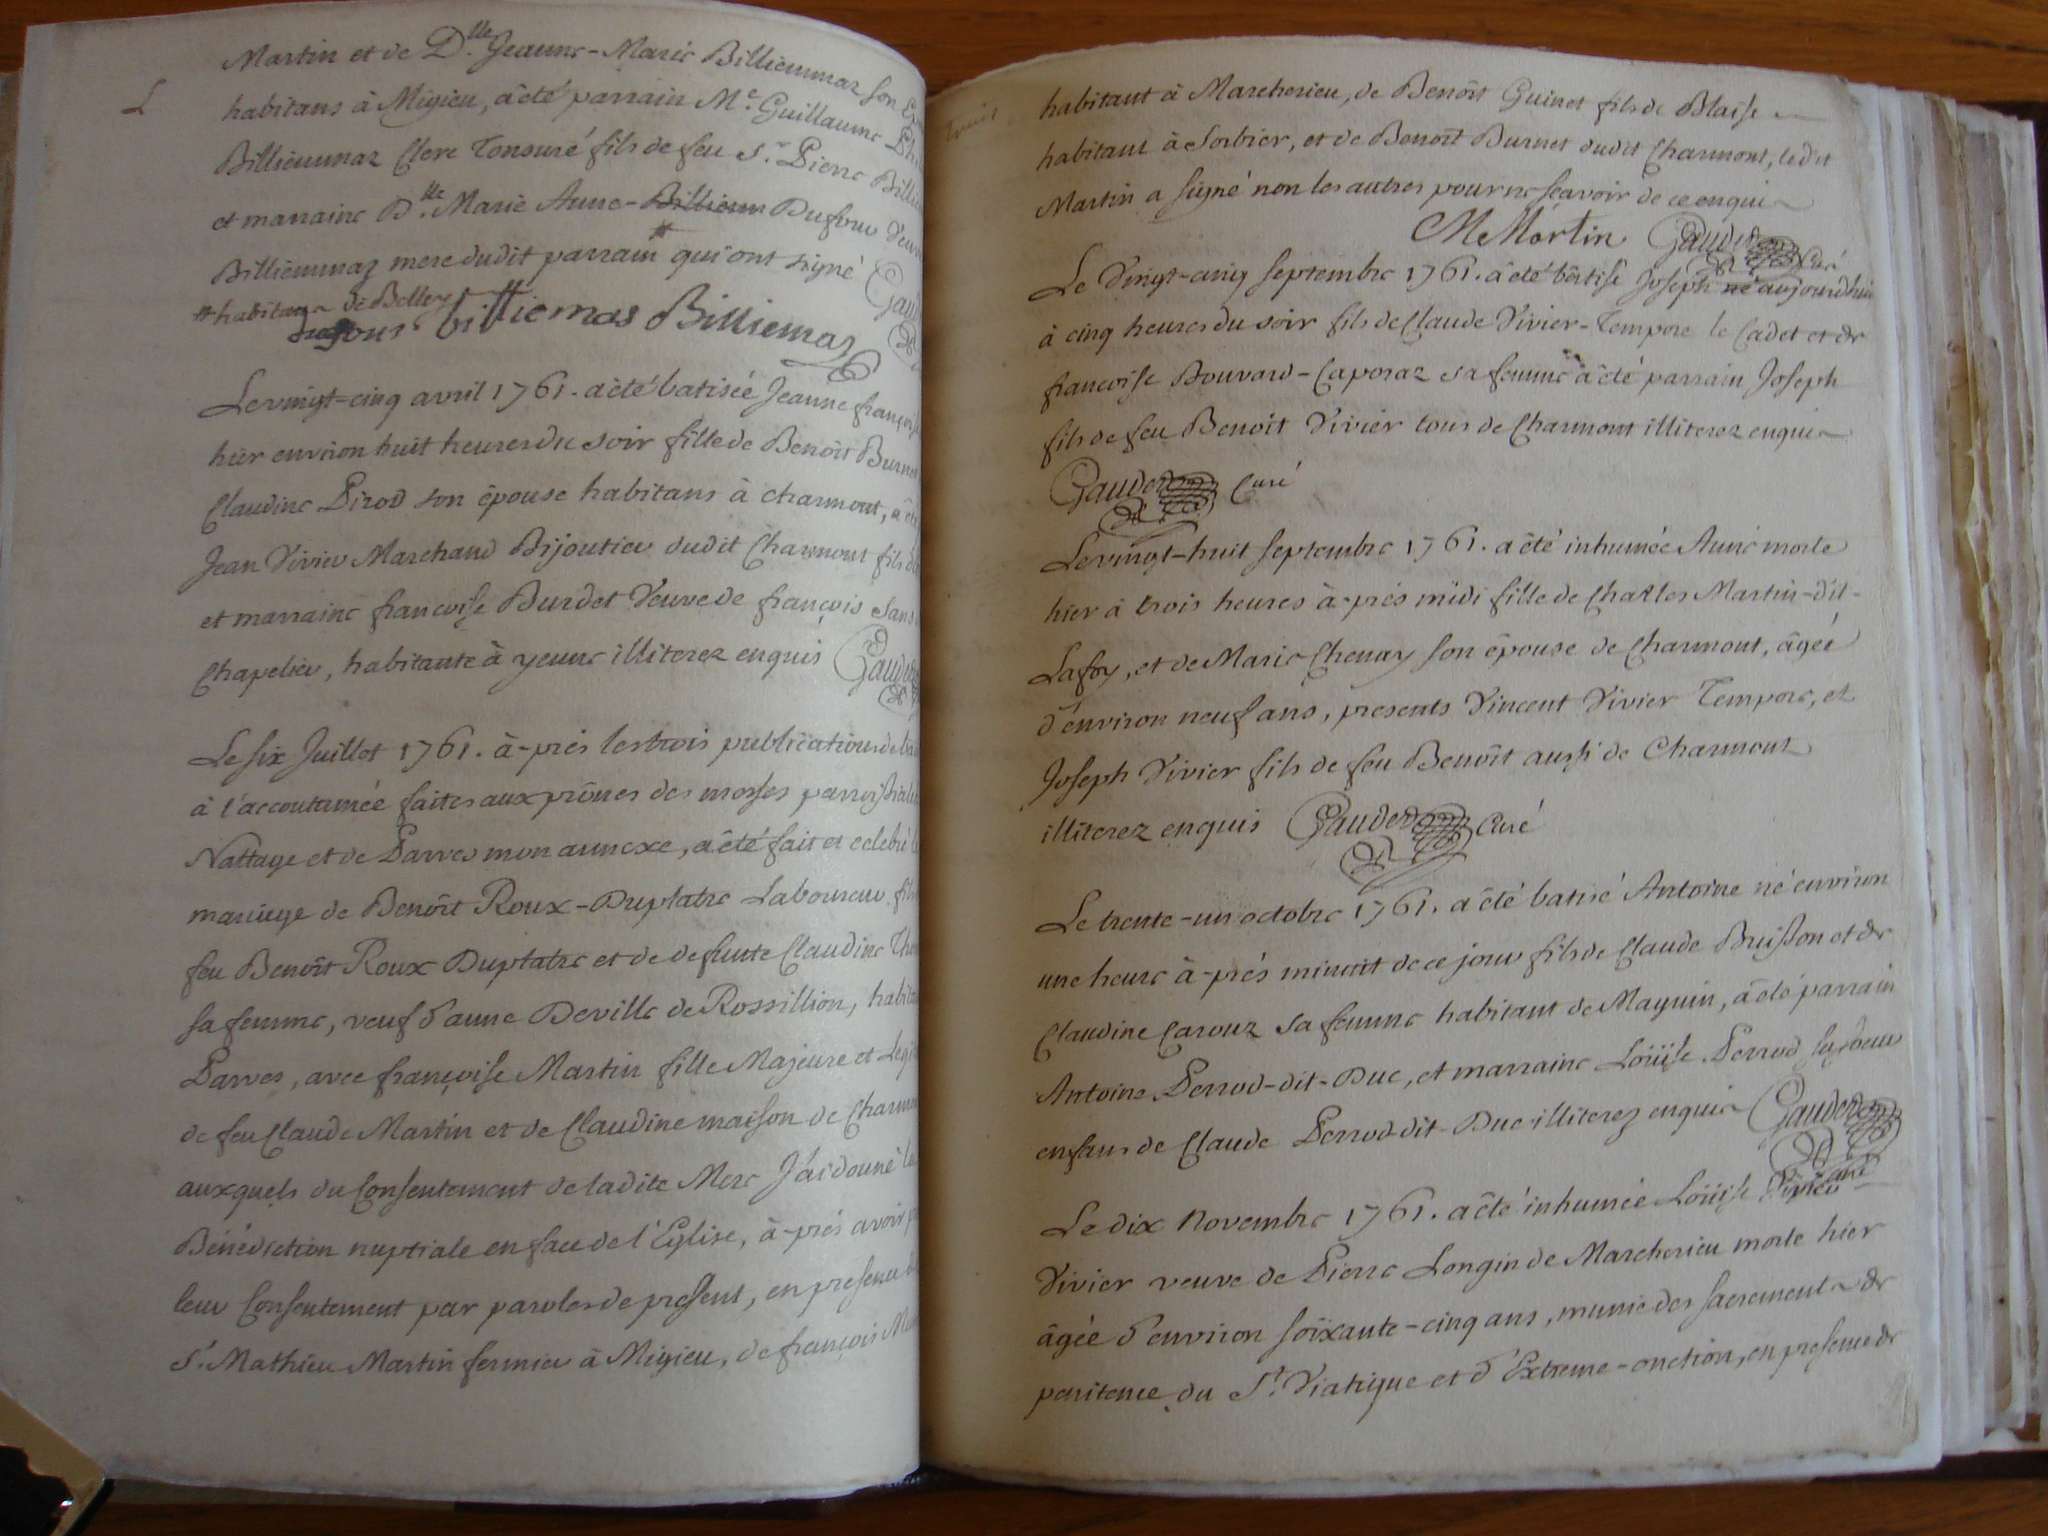 Martin et de D.lle Jeanne-Marie Billiemmaz son
L
habitans à Migieu, a été parrain Me. Guillaume
Billiemmaz Clerc Tonsuré fils de feu Sr. Pierre
et marraine D.lle Marie Anne Billiem Dufour
Billiemmaz mere dudit parrain # qui ont signé
# habitans de Belley
Dufour billiemas Billiemaz
Le vingt-cinq avril 1761. a été batisée Jeanne
hier environ huit heures du soir fille de Benoît Burnet
Claudine Pirod son épouse habitans à Charmont, a
Jean Vivier Marchand Bijoutier dudit Charmont fils
et marraine françoise Burdet Veuve de françois
Chapelier, habitante à yenne illiterez enquis
Le six Juillet 1761. à-prés les trois publications de
à l'accoutumée faites aux prônes des messes
Nattage et de Parves mon annexe, a été fait et celebré
mariage de Benoît Roux-Duplatre Laboureur
feu Benoît Roux Duplatre et de defunte Claudine
sa femme, veuf d'anne Deville de Rossillion,
Parves, avec françoise Martin fille Majeure et
de feu Claude Martin et de Claudine maison de
auxquels du Consentement de ladite Mere J'ai donné
Bénédiction nuptiale en face de l'Eglise, à-prés avoir
leur Consentement par paroles de present, en presence
Sr. Mathieu Martin fermier à Migieu, de françois
habitant à Marcherieu, de Benoît Guinet fils de Blaise
habitant à Sorbier, et de Benoît Burnet dudit Charmont, ledit
Martin a signé non les autres pour ne sçavoir de ce enquis
M Martin Gauder Curé
Le Vingt-cinq septembre 1761. a été bâtisé Joseph né aujourdhui
à cinq heures du soir fils de Claude Vivier-Tempore le Cadet et de
françoise Bouvard-Caporaz sa femme a été parrain Joseph
fils de feu Benoît Vivier tous de Charmont illiterez enquis
Gauder Curé
Le vingt-huit septembre 1761. a été inhumée Anne morte
hier à trois heures à-prés midi fille de Charles Martin-dit-
Lafoy, et de Marie Chenay son épouse de Charmont, âgée
d'environ neuf ans, presents Vincent Vivier Tempore, et
Joseph Vivier fils de feu Benoît aussi de Charmont
illiterez enquis Gauder Curé
Le trente-un octobre 1761. a été batisé Antoine né environ
une heure à-prés minuit de ce jour fils de Claude Buisson et de
Claudine Carouz sa femme habitant de Maynin, a été parrain
Antoine Perrod-dit-Duc, et marraine Loüise Perrod sa soeur
enfans de Claude Perrod-dit-Duc illiterez enquis Gauder
Curé
Le dix Novembre 1761. a été inhumée Loüise
Vivier veuve de Pierre Longin de Marcherieu morte hier
âgée d'environ soixante-cinq ans, munie des sacrements de
penitence, du St. Viatique et d'Extreme-onction, en presence de